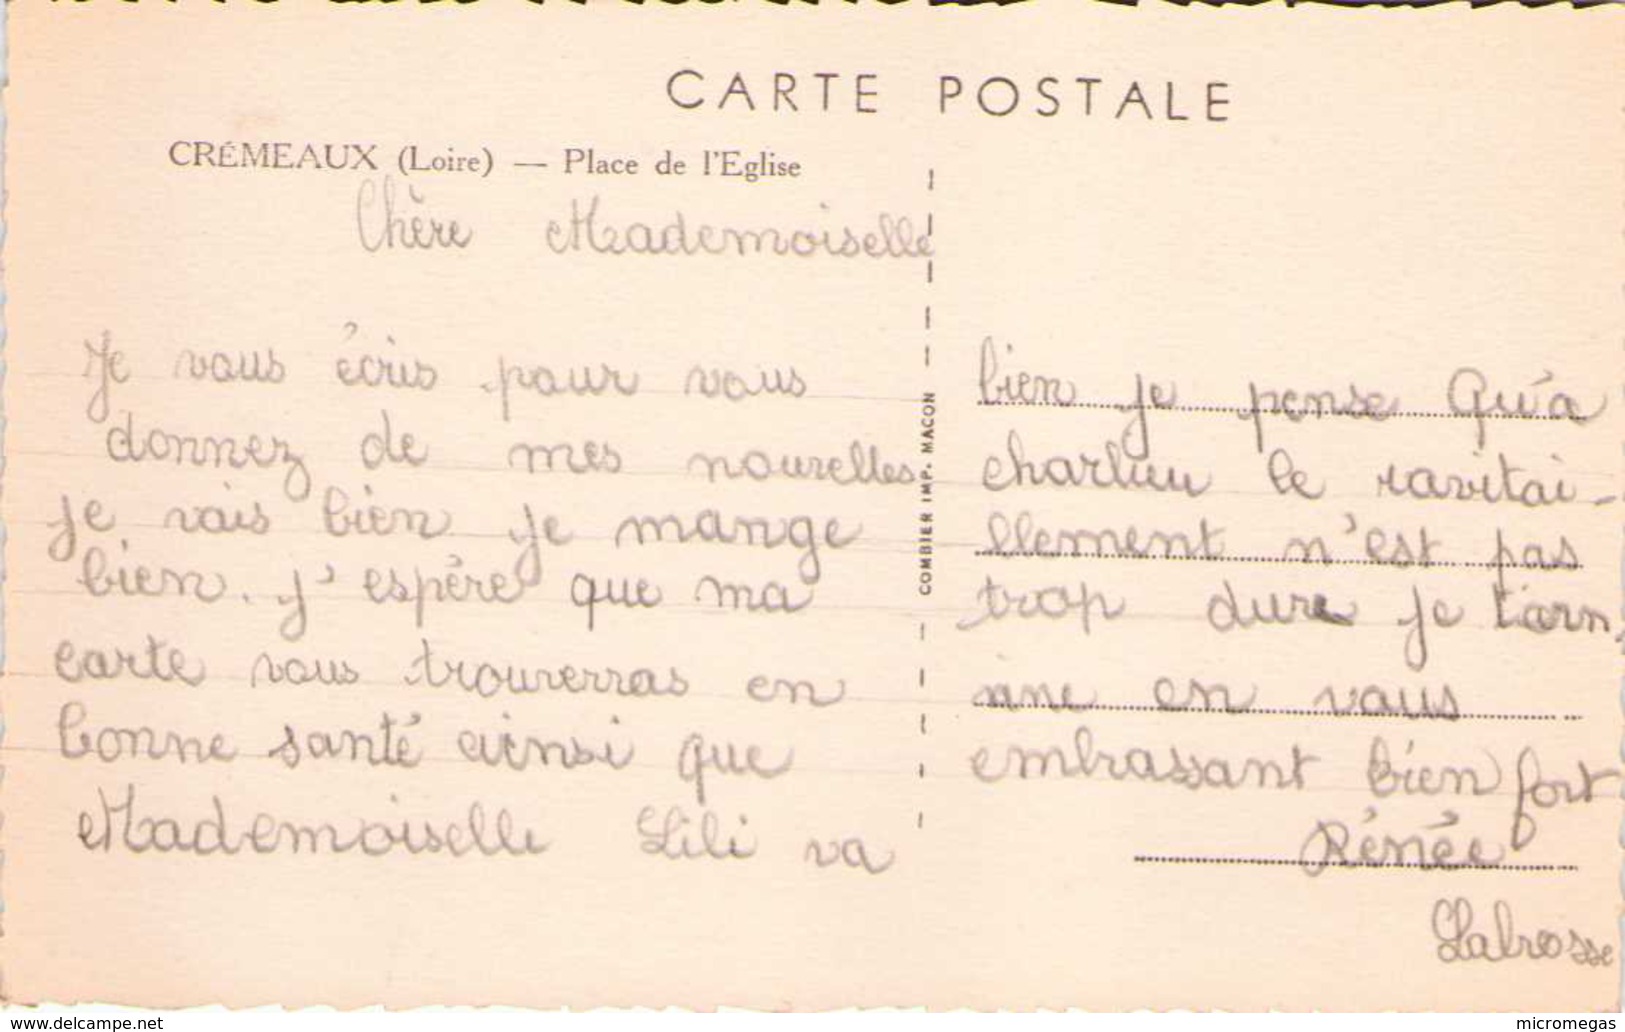 CARTE POSTALE
CRÉMEAUX (Loire) — Place de l'Eglise
Chère Mademoiselle
Je vous écris pour vous
donnez de mes nouvelles
je vais bien je mange
bien. j'espère que ma
carte vous trouverras en
bonne santé ainsi que
Mademoiselle Lili va
COMBIER IMP. MACON
bien je pense Qu'a
charlieu le ravitai-
llement n'est pas
trop dure je term
ine en vous
embrassant bien fort
Rénée
Labrosse
www.delcampe.net
micromegas